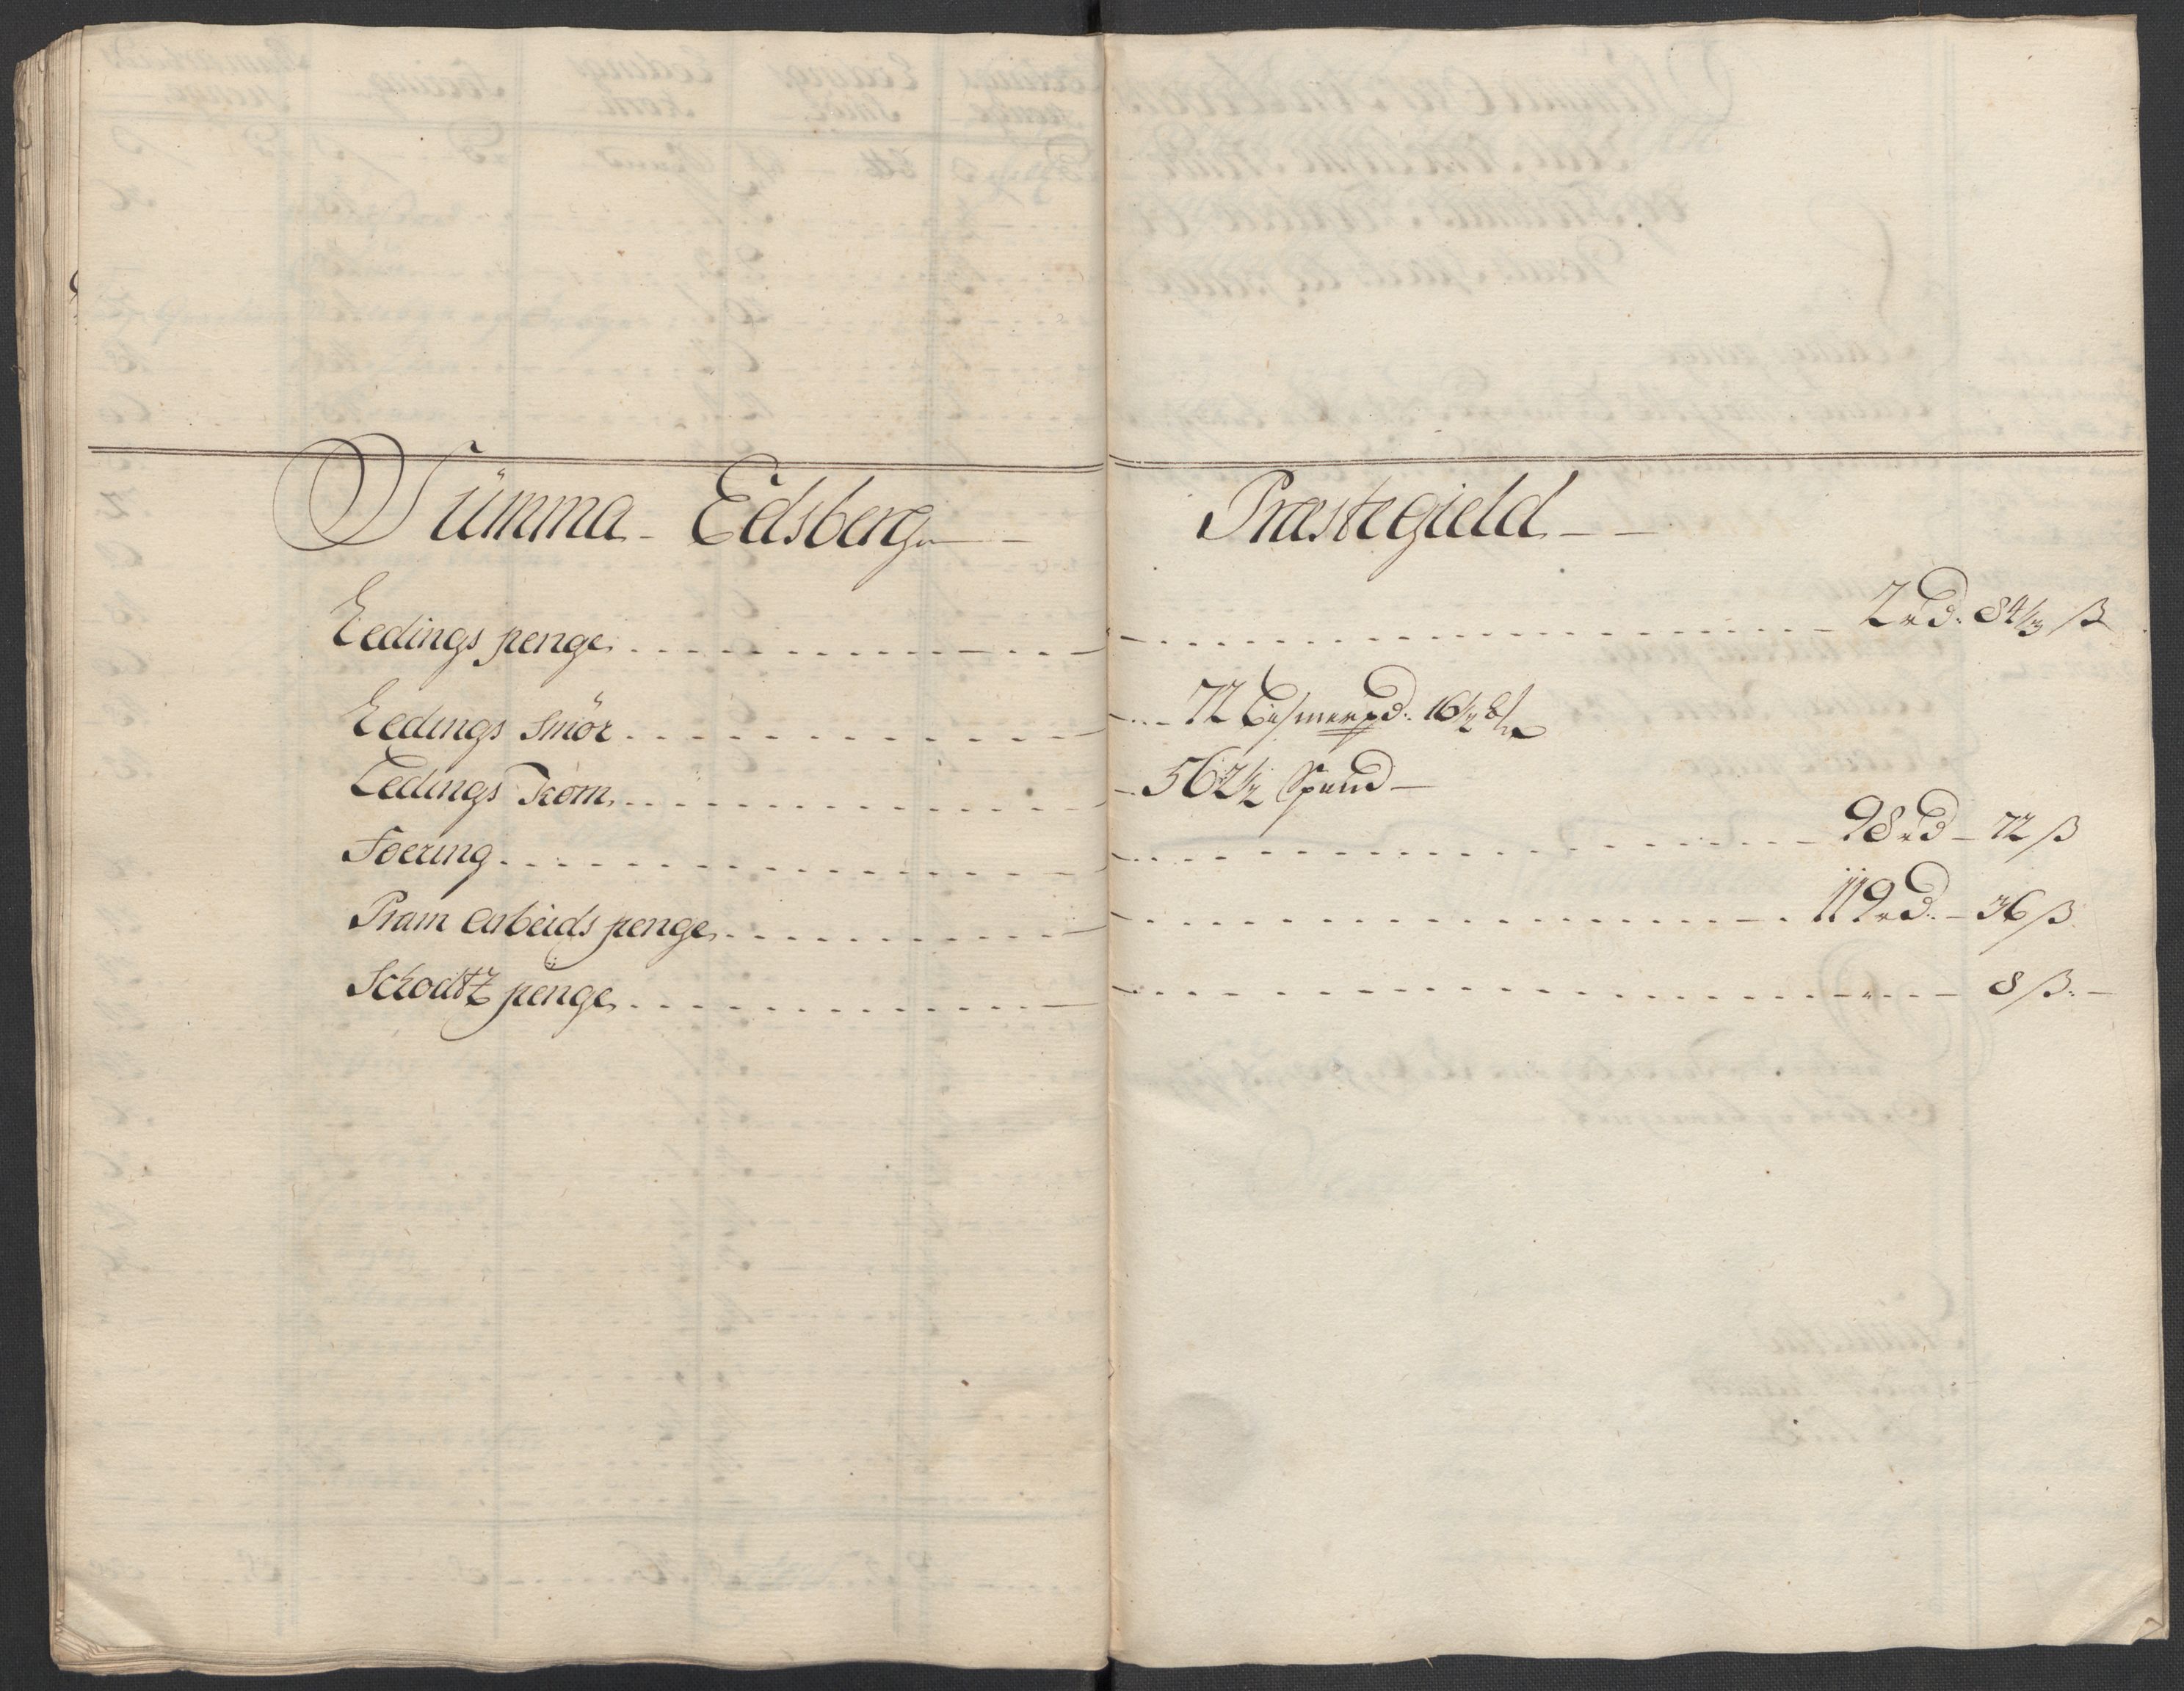 Summa Edsberg Præstegield
Ledings penge 2 rd: 84/3 ß
Ledings Smör 72 Bismerpd: 16½
Ledings Korn 562½ Spand
Foering 98 rd 72 ß
Pram Arbeids penge 119 rd. 36 ß
Schodtz penge 8 ß: